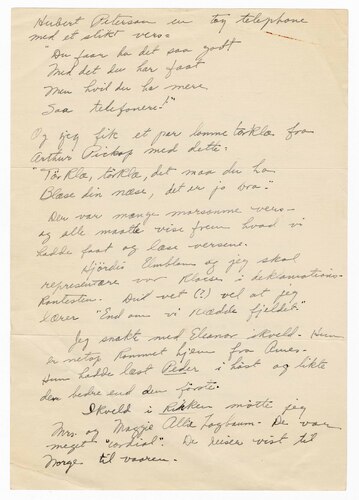 Herbert Peterson en toy telephone
med et slikt vers:
"Du faar ha det saa godt
Med det du har faat
Men hvil du ha mere
Saa telefonere!"
Og jeg fik et par lomme tørklæ fra
Arthur Pickop med dette:
"Tørklæ, tørklæ, det maa du ha
Blæse din næse, det er jo bra."
Der var mange morsomme vers -
og alle maatte vise frem hvad vi
hadde faat og læse versene.
Hjördis Emblem og jeg skal
representere vor Klasse i deklamations-
Kontesten. Du vet (?) vel at jeg
lærer "End om vi klædde fjeldet"
Jeg snakte med Eleanor ikveld. Hun
er netop kommet hjem fra Ames.
Hun hadde læst Peder i höst og likte
den bedre end den förste.
Ikveld i Kirken mötte jeg
Mrs. og Maggie Allie Fogbaum. De var
meget "cordial". De reiser vist til
Norge til vaaren.